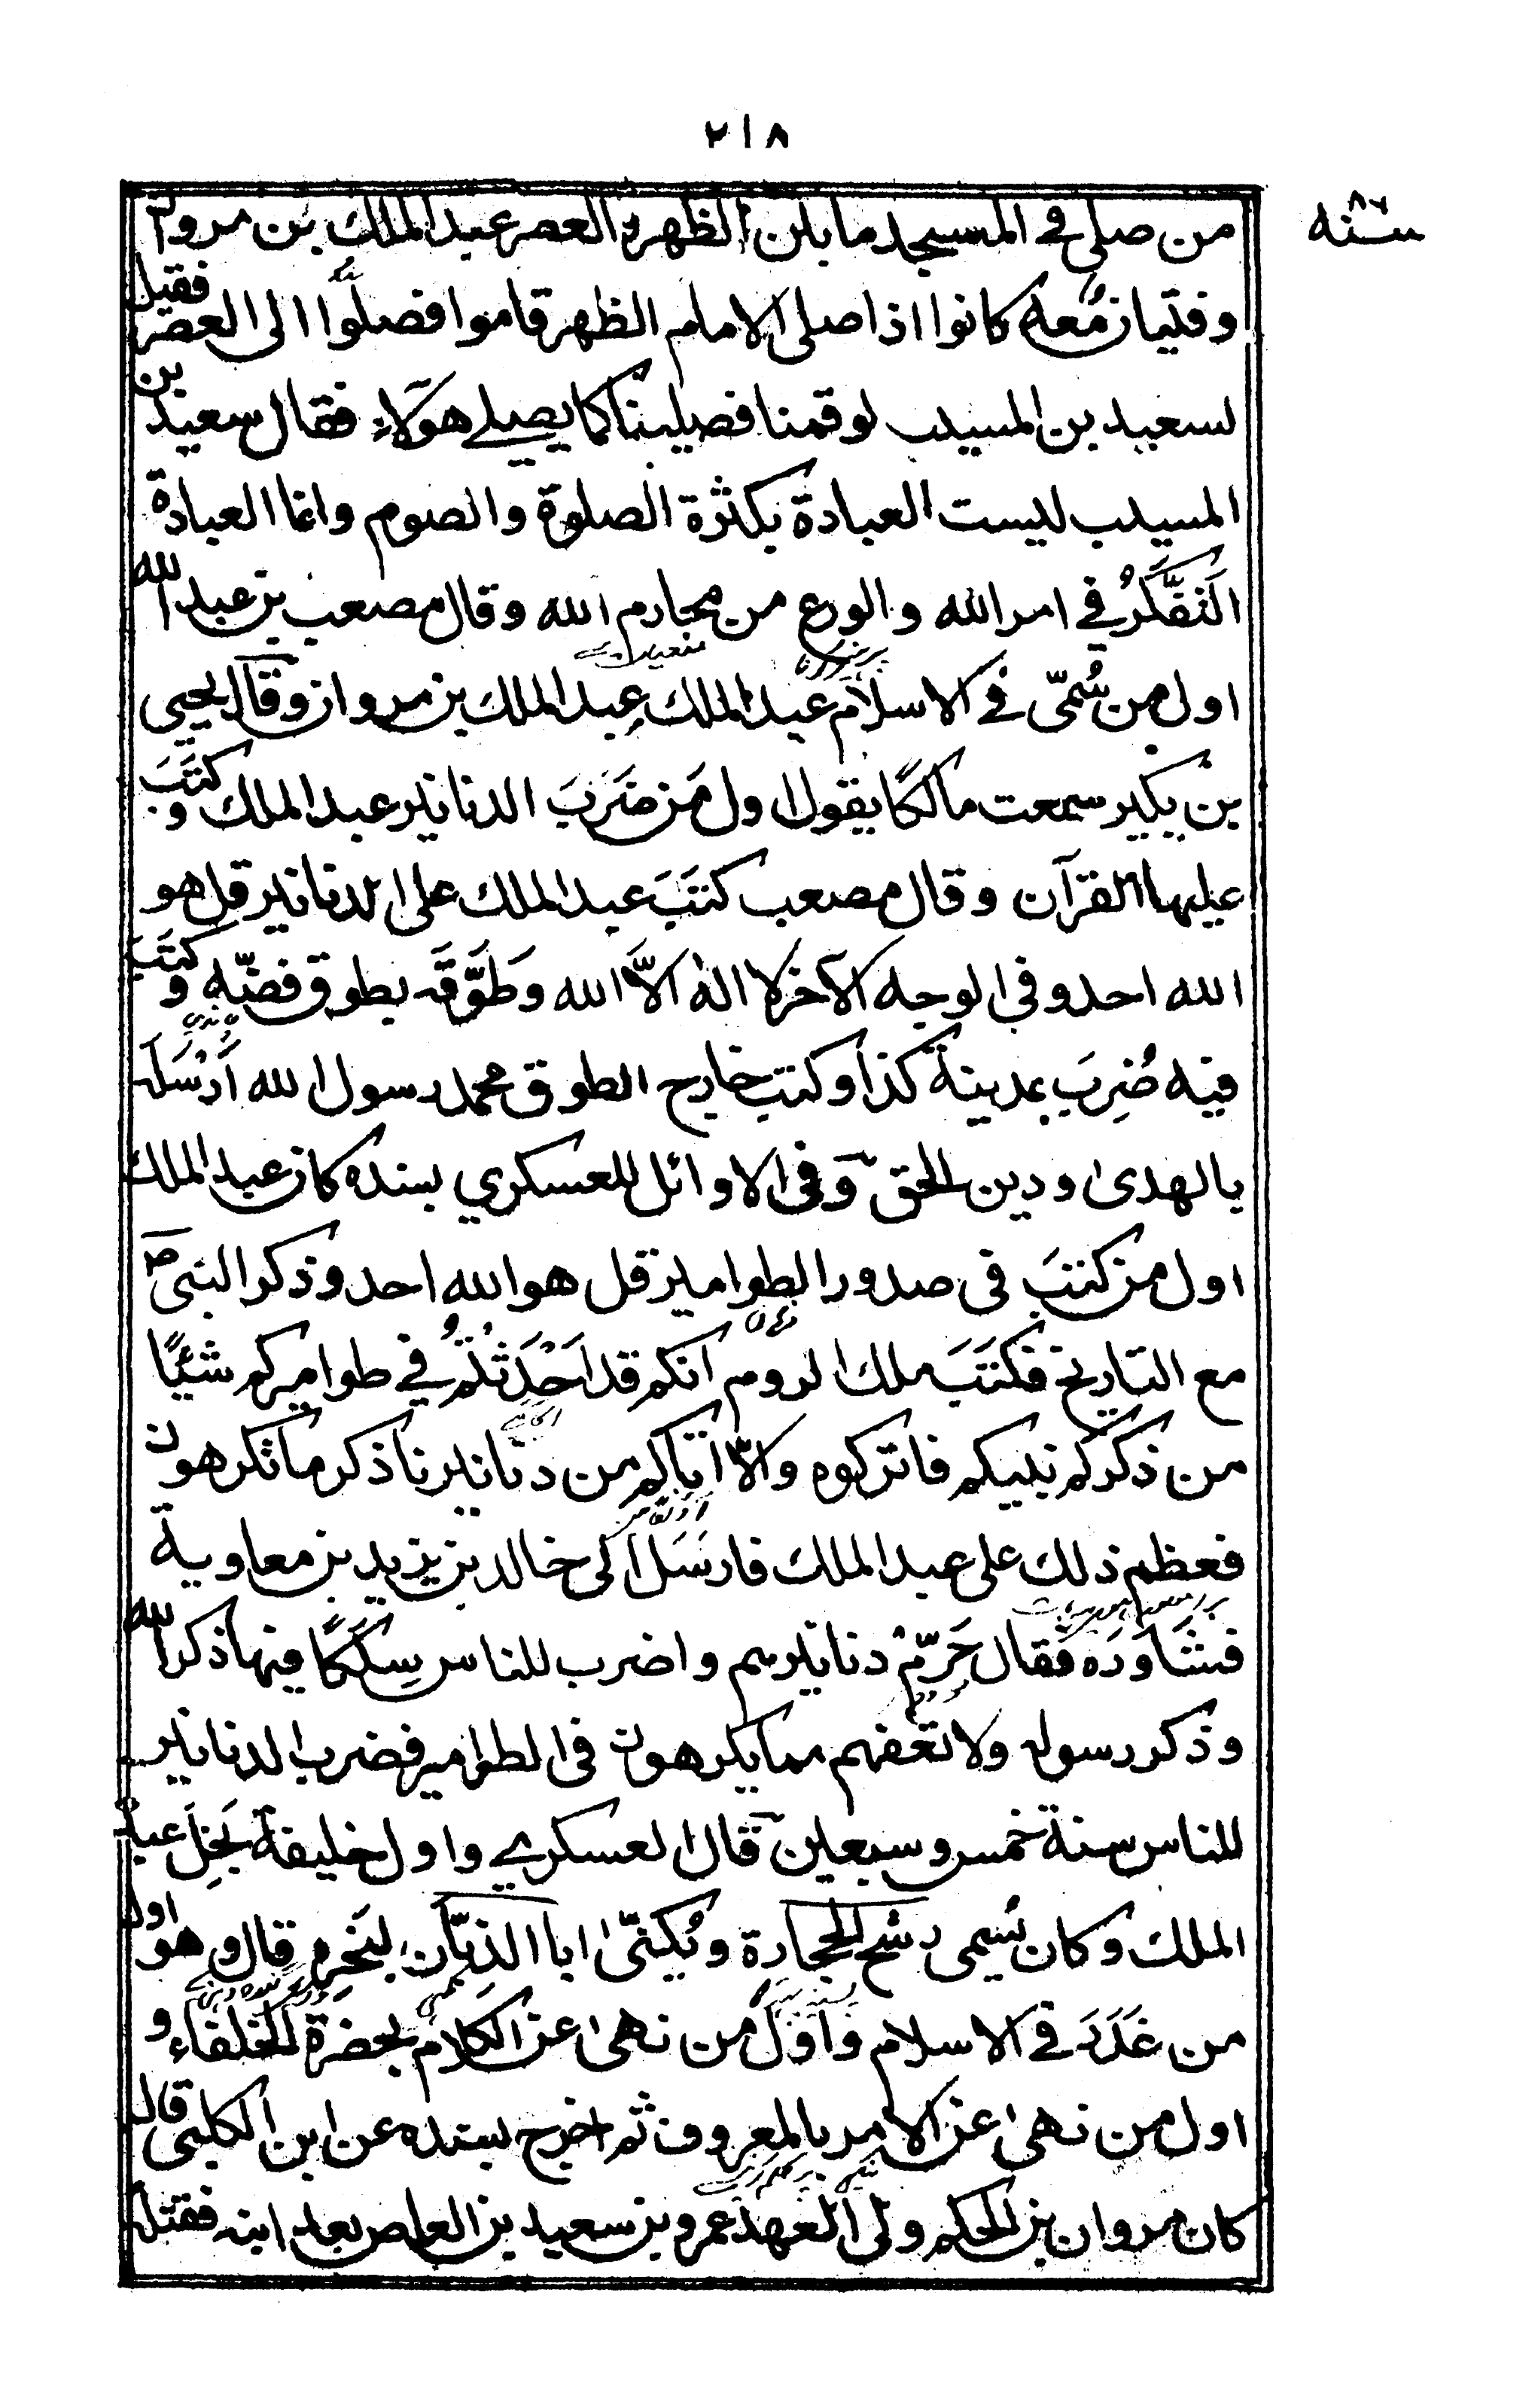 ٢١٨
سنه ٨٦
من صلى في المسجد ما بين الظهر والعصر عبد الملك بن مروان
وفتيان معه كانوا اذا صلى الامام الظهر قاموا فصلوا الى العصر فقيل
لسعيد بن المسيب لو قمنا فصلينا كما يصلے هؤلاء فقال سعيد بن
المسيب ليست العبادة بكثرة الصلوة والصوم وانما العبادة
التَّفَكُّرُ في امر الله والورع من محارم الله وقال مصعب بن عبد الله
اول من سُمّى في الاسلام عبد الملك عبد الملك بن مروان وقال يحيى
بن بكير سمعت مالكًا يقول اول مَن ضَرَبَ الدنانير عبد الملك وكَتَبَ
عليها القرآن وقال مصعب كتَبَ عبد الملك على الدنانير قل هو
الله احد وفي الوجه الآخر لا اله الّا الله وطَوَّقَه بطوق فضّه وكتَبَ
فيه ضُرِبَ بمدينة كذا وكتب خارج الطوق محمد رسول الله اَرْسَلَه
بالهدى ودين الحق وفي الاوائل للعسكري بسنده كان عبد الملك
اول من كتبَ في صدور الطوامير قل هو الله احد وذكر النبى ص
مع التاريخ فكتَبَ ملك الروم انكم قد اَحْدَثْتُمْ في طواميركم شيئًا
من ذكر نبيكم فاتركوه والّا اتاكم من دنانيرنا ذكر ما تكرهون
فعظم ذلك على عبد الملك فارسَلَ الى خالد بن يزيد بن معاوية
فشَاوَرَه فقال حَرِّمْ دنانيرهم واضرب للناس سِكَكًا فيها ذكر الله
وذكر رسوله ولا تعفهم مما يكرهون في الطوامير فضرب الدنانير
للناس سنة خمس وسبعين قال العسكرے واول خليفة بَخِلَ عبد
الملك وكان يُسمى رشح الحجارة ويُكنّى ابا الذبّان لبَخَرِه قال وهو اول
من غَدَرَ في الاسلام واوّل من نهى عن الكلام بحضرة الخلفاء و
اول من نهى عن الامر بالمعروف ثم اخرج بسنده عن ابن الكلبي قال
كان مروان بن الحكم ولى العهد عمرو بن سعيد بن العاص بعد ابنه فقتله